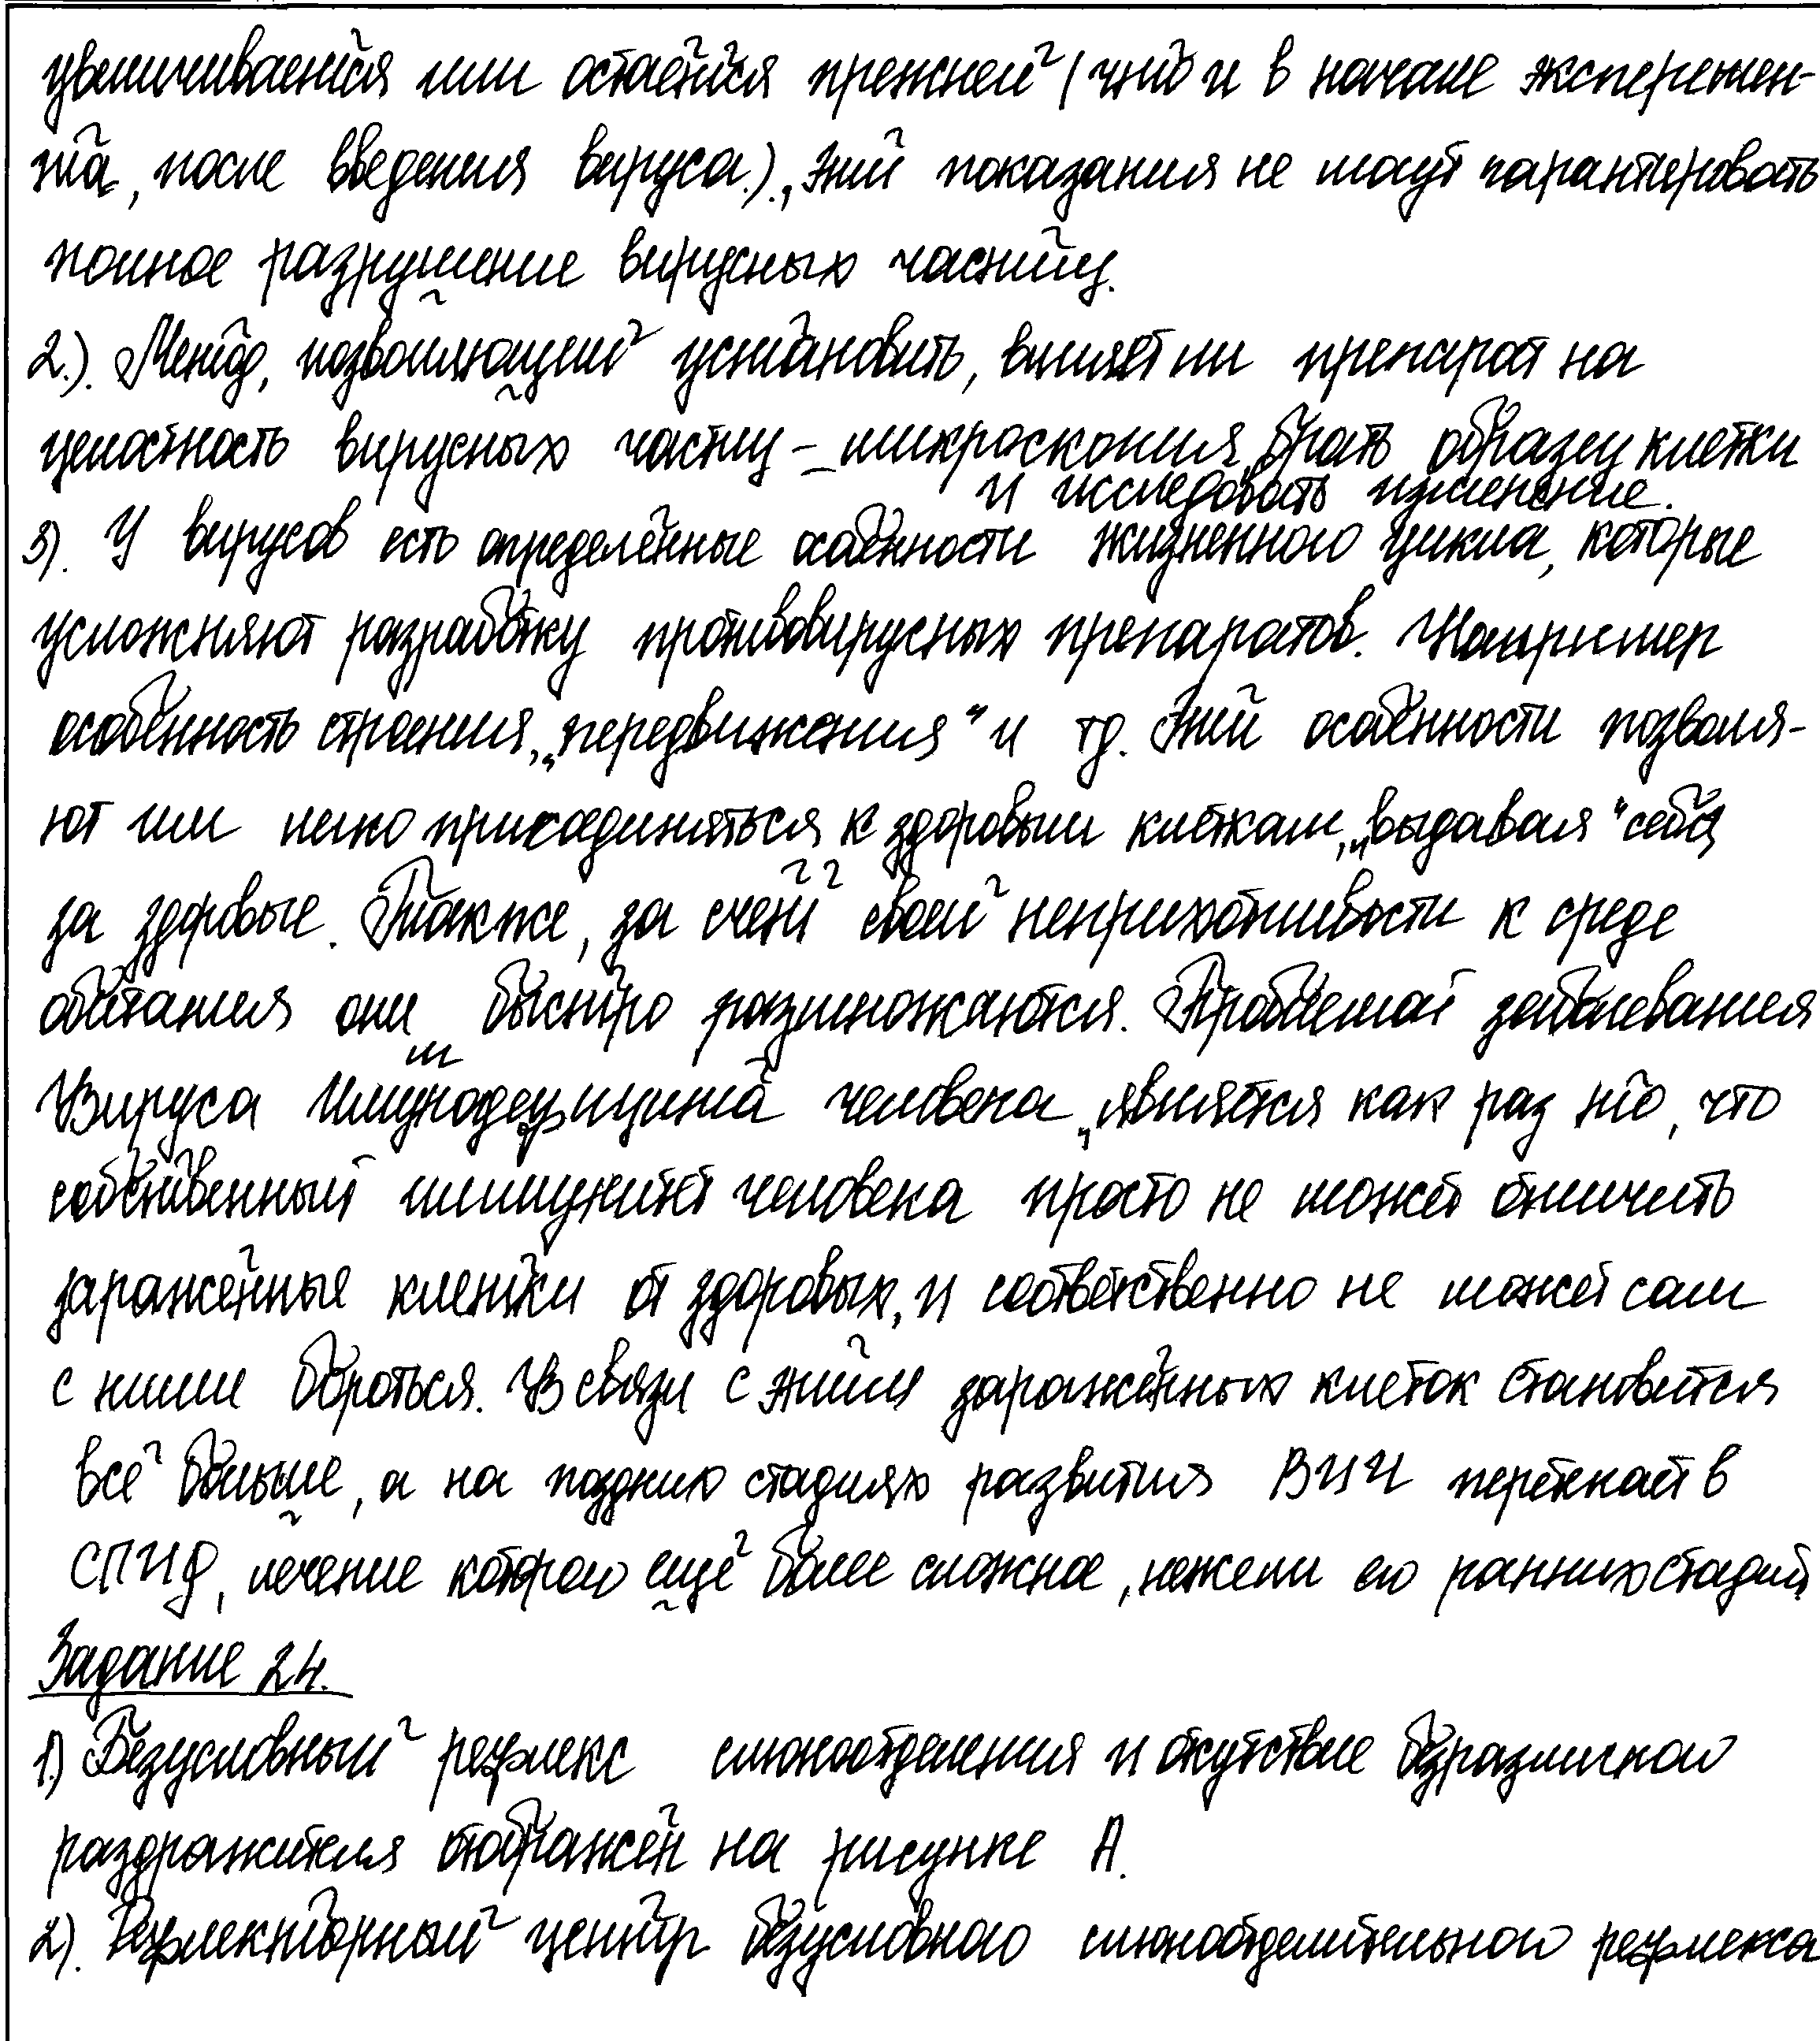 увеличивается или остаётся прежней (что и в начале эксперемен-
та, после введения вируса.), эти показания не могут гарантировать
полное разрушение вирусных частиц.
2.). Метод, позволяющий установить, влияет ли препарат на
целостность вирусных частиц – микроскопия, брать образец клетки
и исследовать изменение.
3). У вирусов есть определённые особенности жизненного цикла, которые
усложняют разработку противовирусных препаратов. Например
особенность строения, „передвижения" и тд. Эти особенности позволя-
ют им легко присоединяться к здоровым клеткам, „выдавая" себя
за здоровые. Также, за счёт своей неприхотливости к среде
обитания они быстро размножаются. Проблемой заболевания
Вируса Иммунодефицита человека, является как раз то, что
собственный иммунитет человека просто не может отличить
заражённые клетки от здоровых, и соответственно не может сам
с ними бороться. В связи с этим заражённых клеток становится
всё больше, а на поздних стадиях развития ВИЧ перетекает в
СПИД, лечение которого ещё более сложное, нежели его ранних стадий,
Задание 24.
1.) Безусловный рефлекс слюноотделения и отсутствие безразличного
раздражителя отображён на рисунке А.
2). Рефлекторный центр безусловного слюноотделительного рефлекса